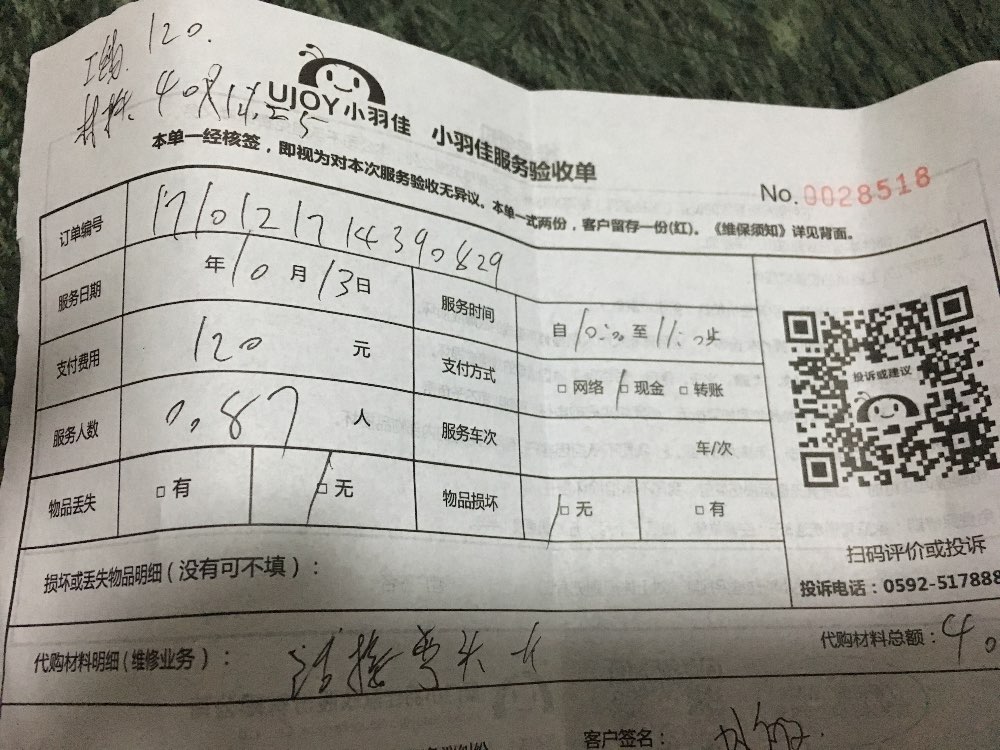 工钱 120.
材料 40
UJOY 小羽佳 小羽佳服务验收单
本单一经核签，即视为对本次服务验收无异议。本单一式两份，客户留存一份(红)。《维保须知》详见背面。
No. 0028518
订单编号 1710121714390829
服务日期 年10月13日 服务时间 自10:00至11:00止
支付费用 120 元 支付方式 □网络 □现金 □转账
服务人数 0.87 人 服务车次 车/次
物品丢失 □有 □无 物品损坏 □无 □有
投诉或建议
扫码评价或投诉
投诉电话：0592-517888
损坏或丢失物品明细（没有可不填）：
代购材料明细(维修业务）： 代购材料总额：40
客户签名：